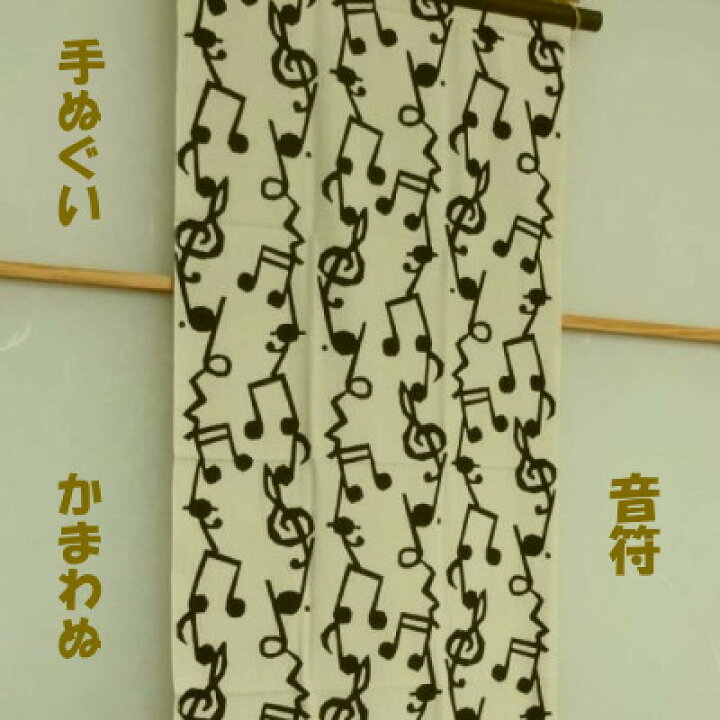 手ぬぐい
かまわぬ
音符